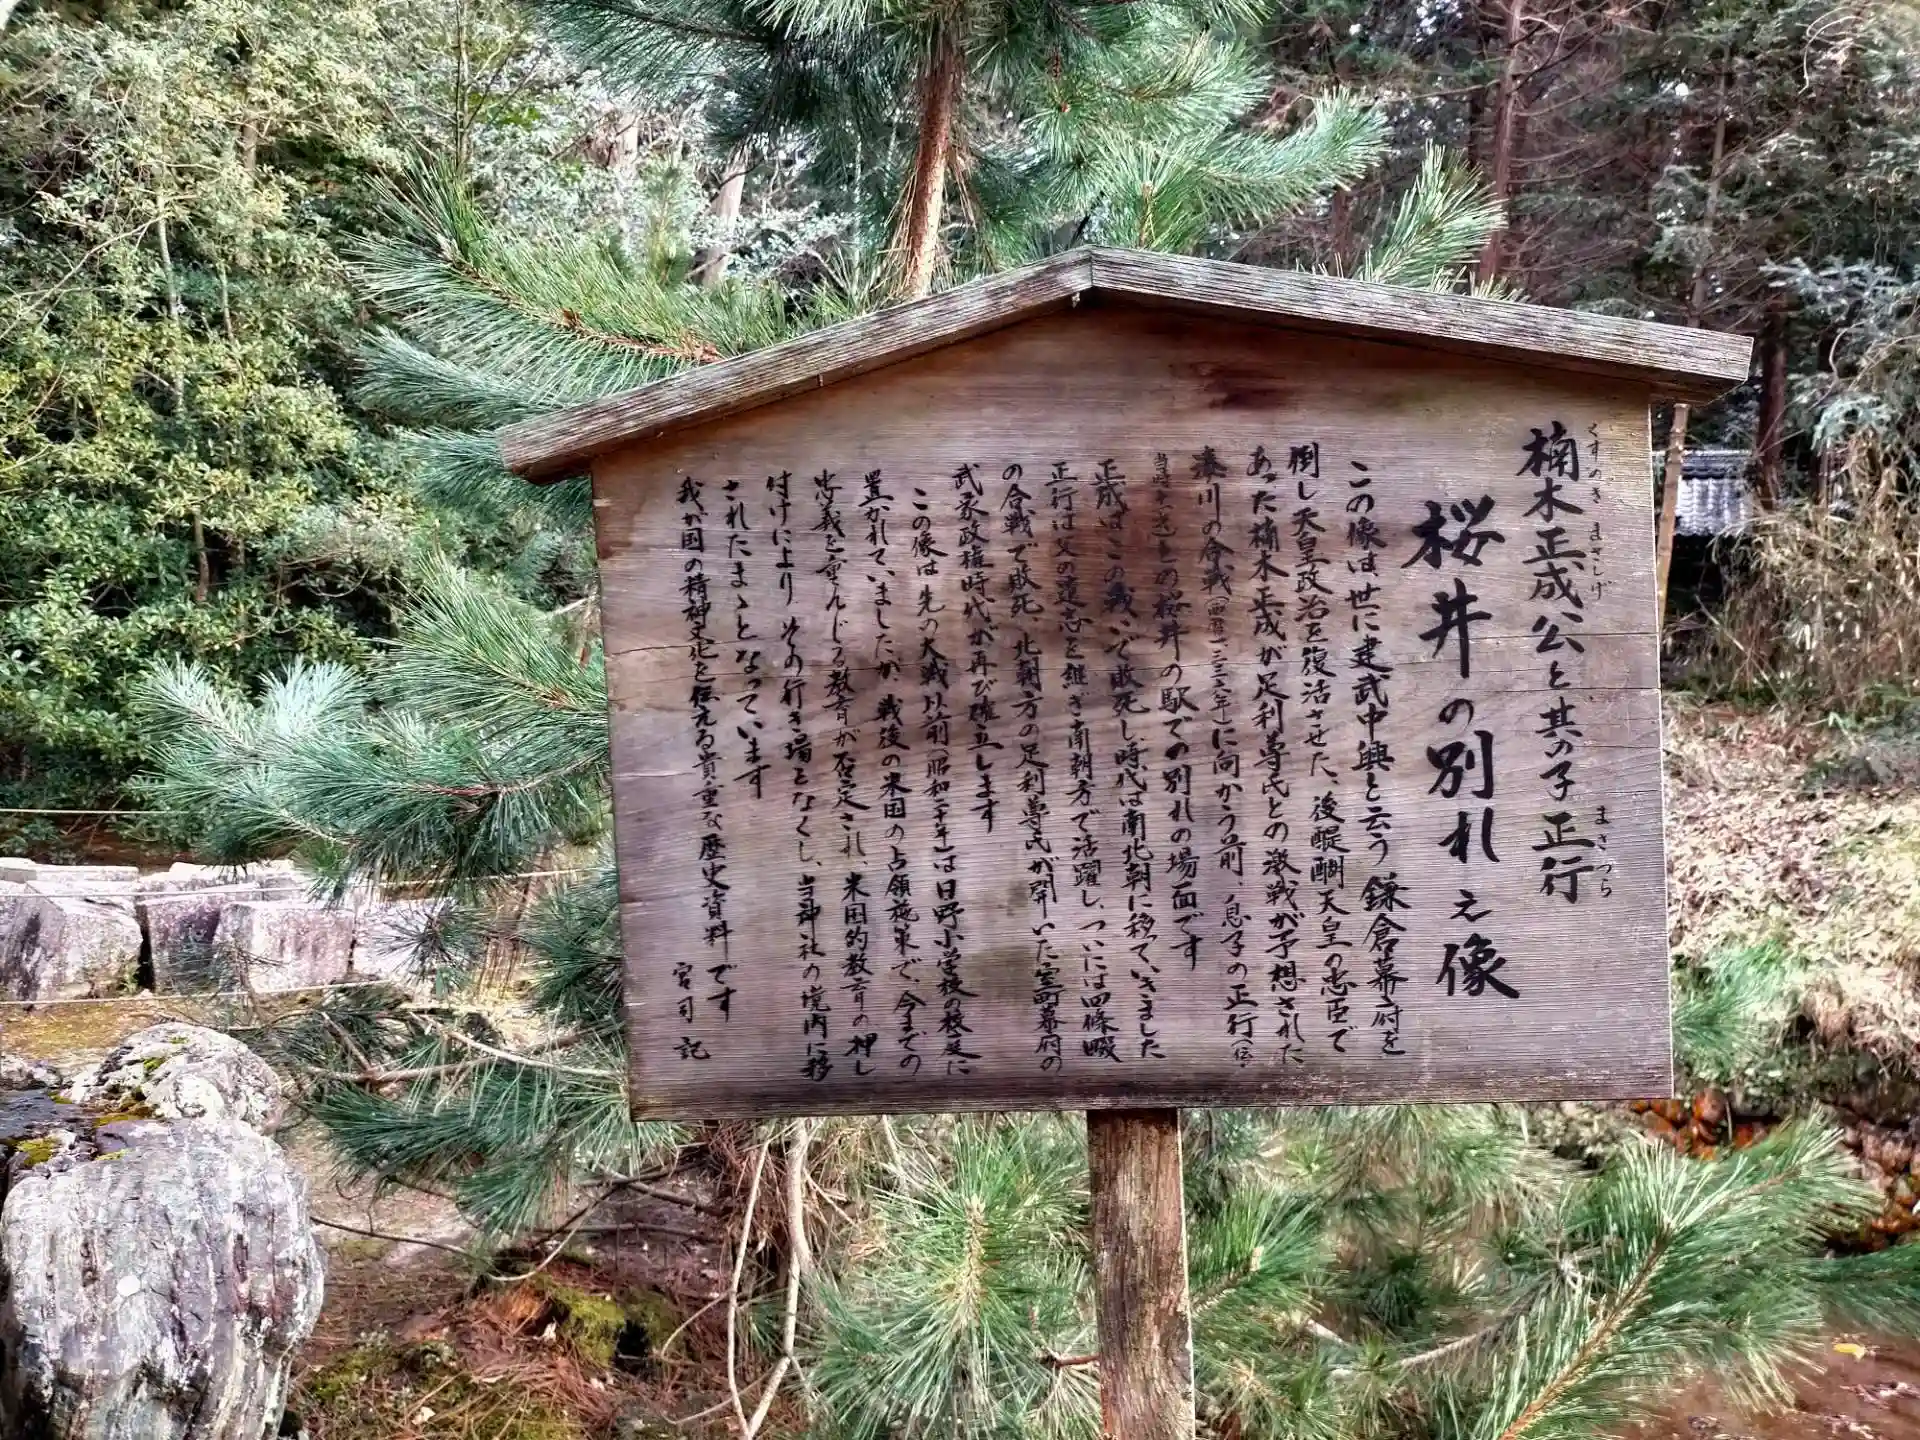 楠木正成公と其の子正行
くすのき まさしげ まさつら
桜井の別れ之像
この像は世に建武中興と云う鎌倉幕府を
倒し天皇政治を復活させた、後醍醐天皇の忠臣で
あった楠木正成が足利尊氏との激戦が予想された
湊川の合戦(西暦一三三六年)に向かう前、息子の正行(伝・
当時十一才)との桜井の駅での別れの場面です
正成はこの戦いで敗死し時代は南北朝に移っていきました
正行は父の遺志を継ぎ南朝方で活躍し、ついには四條畷
の合戦で敗死、北朝方の足利尊氏が開いた室町幕府の
武家政権時代が再び確立します
この像は先の大戦以前(昭和二十年)は日野小学校の校庭に
置かれていましたが、戦後の米国の占領施策で、今までの
忠義を重んじる教育が否定され、米国的教育の押し
付けにより、その行き場をなくし、当神社の境内に移
されたまゝとなっています
我が国の精神文化を伝える貴重な歴史資料です
宮司 記